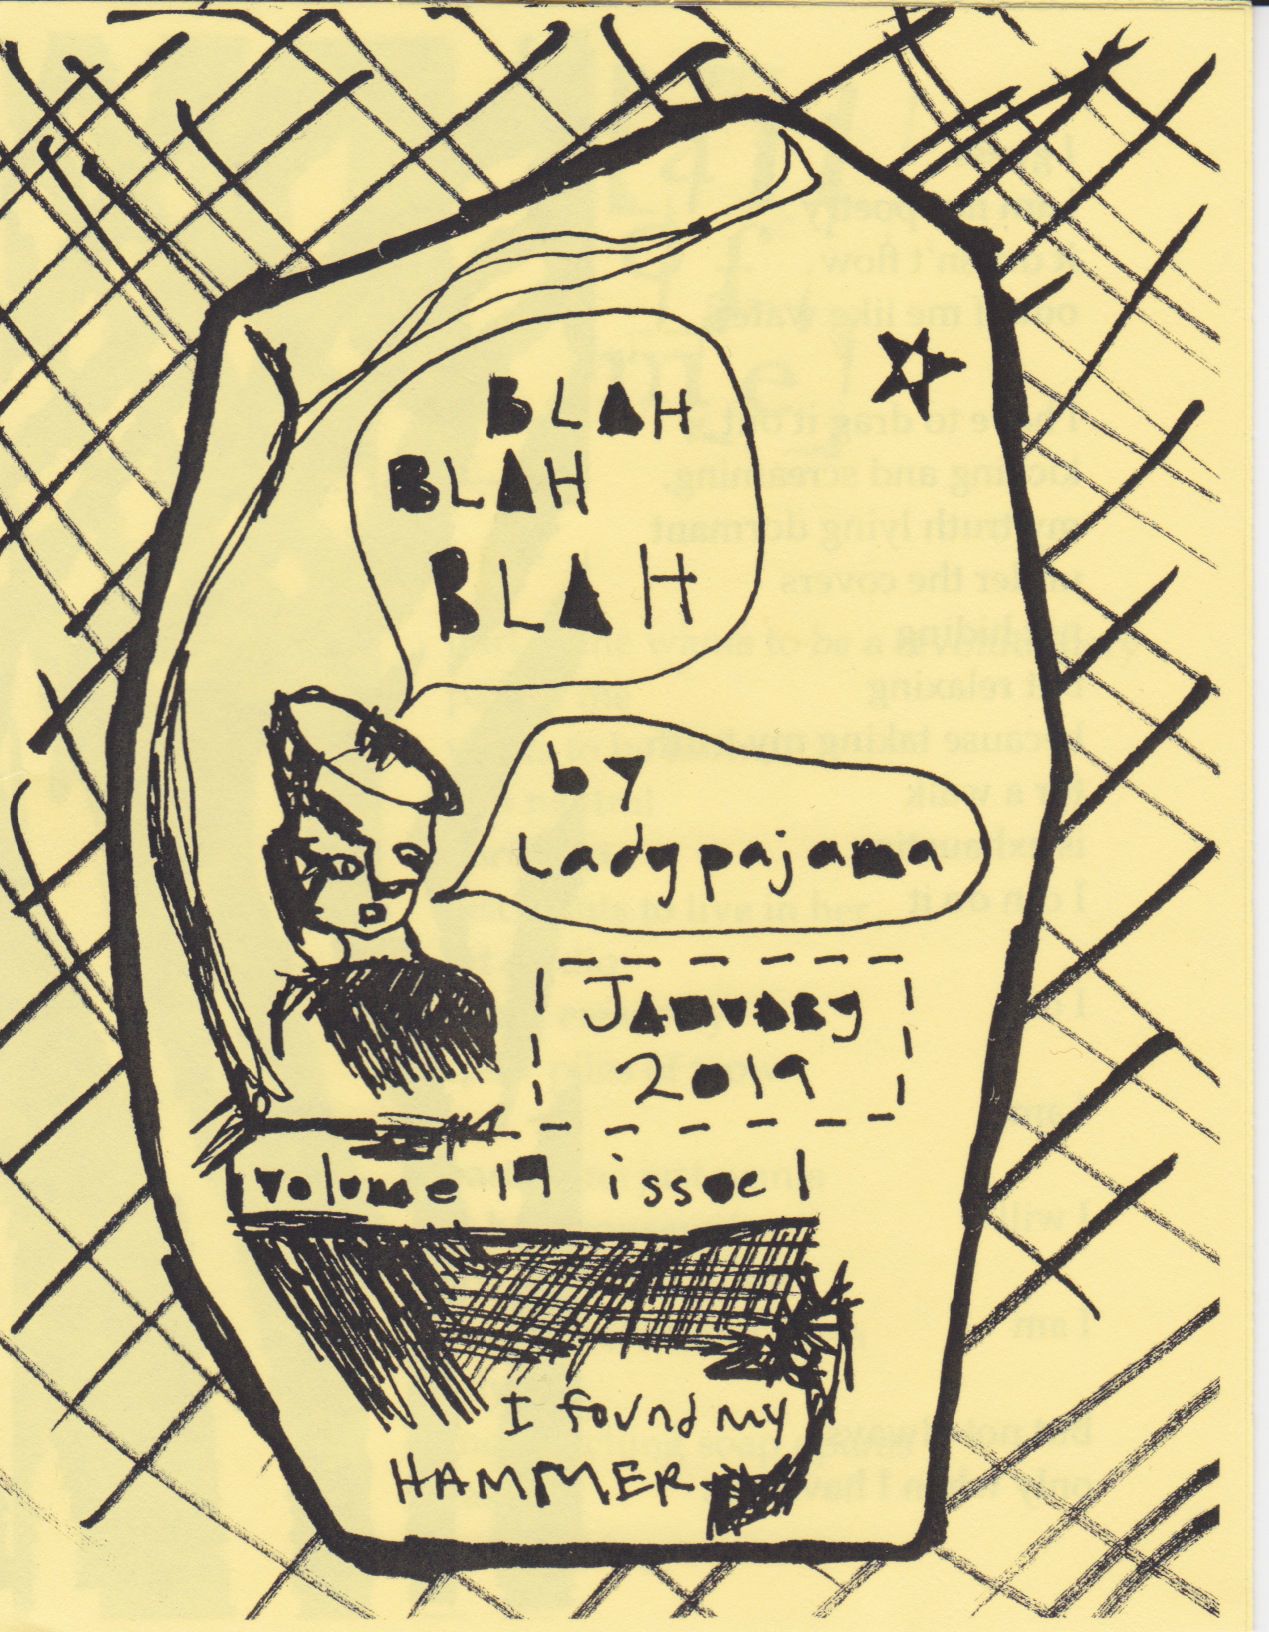 BLAH
BLAH
BLAH
by
Ladypajama
JANUARY
2019
volume 19 issue 1
I found my
HAMMER